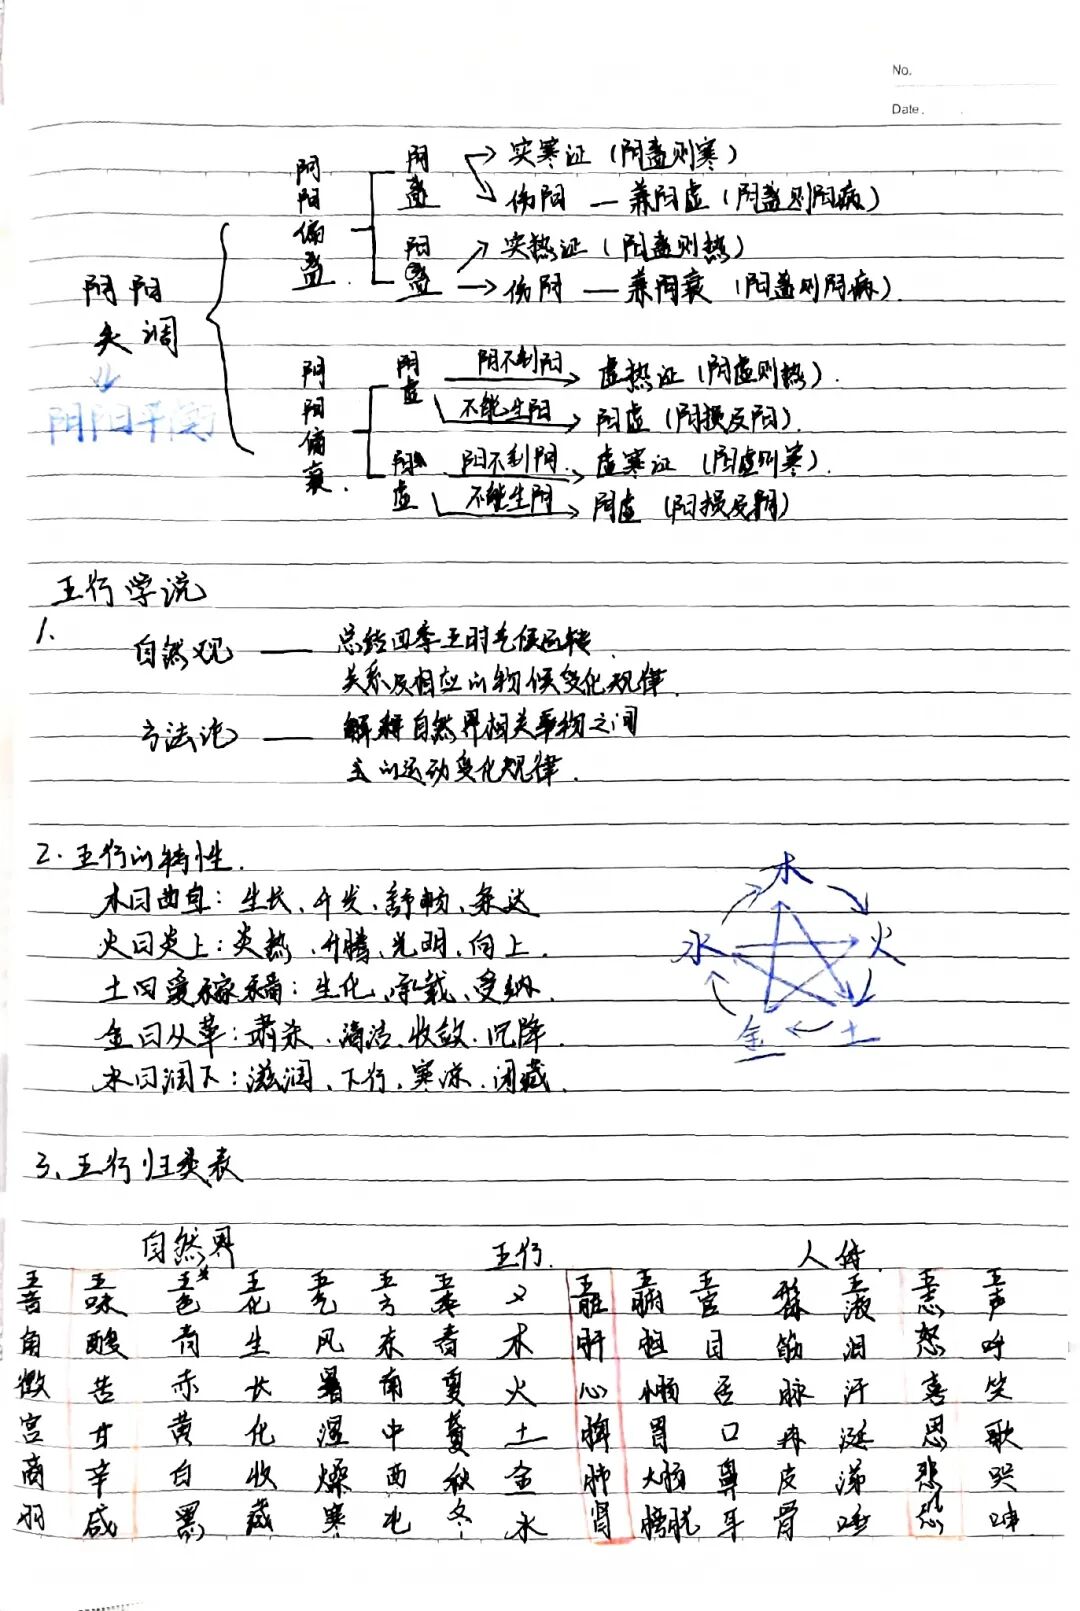 No.
Date.
阴阳失调
阴阳平衡
阴阳偏盛
阴盛
实寒证（阴盛则寒）
伤阳 — 兼阳虚（阴盛则阳病）
阳盛
实热证（阳盛则热）
伤阴 — 兼阴衰（阳盛则阴病）.
阴阳偏衰.
阴虚
阴不制阳
虚热证（阴虚则热）.
不能生阳
阳虚（阴损及阳）.
阳虚
阳不制阴
虚寒证（阳虚则寒）.
不能生阴
阴虚（阳损及阴）
五行学说
1.
自然观 — 总结四季五时气候运转
关系及相应的物候变化规律.
方法论 — 解释自然界相关事物之间
的运动变化规律.
2.五行的特性.
木曰曲直：生长、升发、舒畅、条达
火曰炎上：炎热、升腾、光明、向上.
土曰爰稼穑：生化、承载、受纳.
金曰从革：肃杀、清洁、收敛、沉降.
水曰润下：滋润、下行、寒凉、闭藏.
木
水 火
金 土
3、五行归类表
自然界 五行. 人体.
五音 五味 五色 五化 五气 五方 五季 五脏 五腑 五官 形体 五液 五志 五声
角 酸 青 生 风 东 春 木 肝 胆 目 筋 泪 怒 呼
徵 苦 赤 长 暑 南 夏 火 心 小肠 舌 脉 汗 喜 笑
宫 甘 黄 化 湿 中 土 脾 胃 口 肉 涎 思 歌
商 辛 白 收 燥 西 秋 金 肺 大肠 鼻 皮 涕 悲 哭
羽 咸 黑 藏 寒 北 冬 水 肾 膀胱 耳 骨 唾 恐 呻